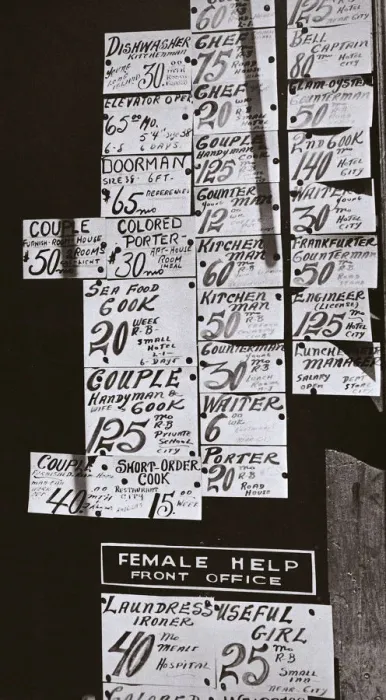 DISHWASHER
KITCHENMAN
30.00
ELEVATOR OPER.
65.00 MO.
5'4" SIZE 38
6-8 6 DAYS
DOORMAN
SIZE 38 - 6 FT.
$65 mo
REFERENCE
COUPLE
FURNISH-ROOM HOUSE
$50 mo
3 ROOMS
COLORED
PORTER-
APT-HOUSE
$30 mo
ROOM
MEAL
SEA FOOD
COOK
20 WEEK
R-B-
SMALL
HOTEL
6-DAYS
COUPLE
HANDYMAN &
WIFE - COOK
125 mo
R.B
PRIVATE
SCHOOL
CITY
COUPLE
40.00
SHORT-ORDER
COOK
RESTAURANT
CITY
15.00
WEEK
60
CHEF
75
ROAD
CHEF
20
COUPLE
HANDYMAN
125
COUNTER
MAN
12
KITCHEN
MAN
60 mo
R.B
KITCHEN
MAN
50 mo
R.B
COUNTERMAN
30 mo
R.B
WAITER
6.00
WK
PORTER
20 mo
R.B
ROAD
HOUSE
125
HOTEL
NEAR CITY
BELL
CAPTAIN
80 mo
HOTEL
CITY
CLAM-OYSTER
COUNTERMAN
50
2ND COOK
140 mo
HOTEL
CITY
WAITER
30 mo
HOTEL
CITY
FRANKFURTER
COUNTERMAN
50 mo
R.B
ENGINEER
(LICENSE)
125 mo
HOTEL
CITY
LUNCHEONETTE
MANAGER
SALARY
OPEN
DEPT
STORE
CITY
FEMALE HELP
FRONT OFFICE
LAUNDRESS
IRONER
40 mo
MEALS
HOSPITAL
USEFUL
GIRL
25 mo
R-B
SMALL
INN-
NEAR-CITY
COLORED